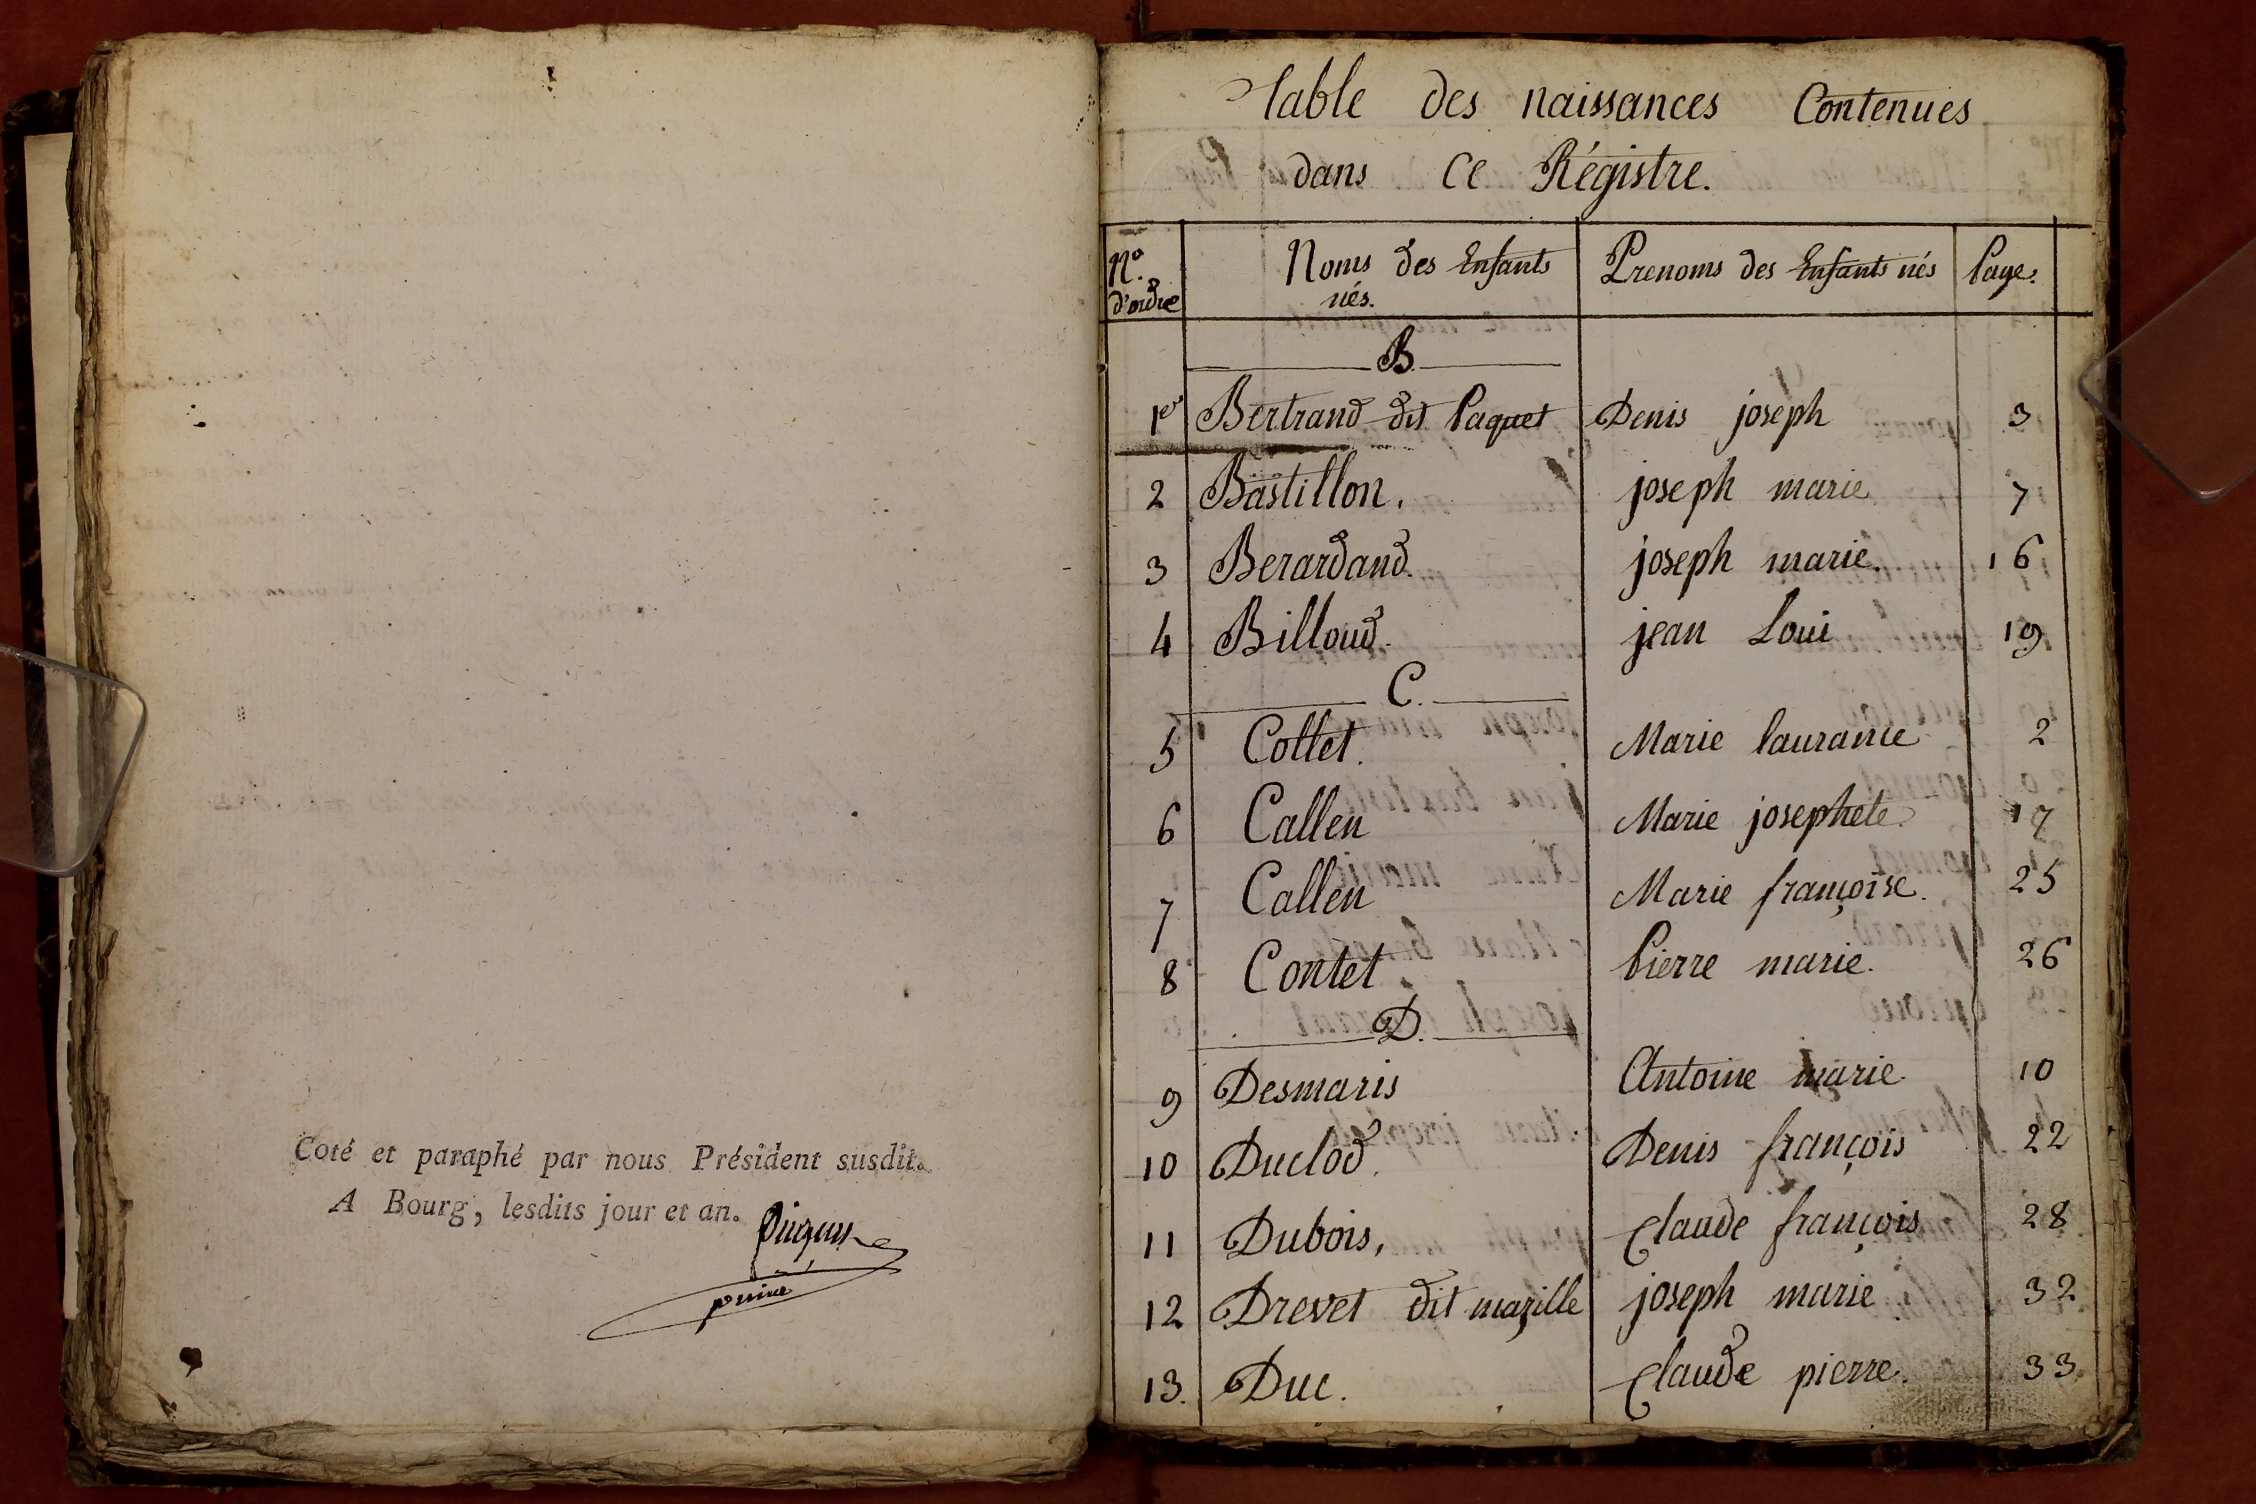 Coté et paraphé par nous Président susdit.
A Bourg, lesdits jour et an.
Table des naissances Contenues
dans Ce Régistre.
N.º d'ordre Noms des Enfants nés. Prenoms des Enfants nés Page.
B.
1er Bertrand dit Paquet Denis joseph 3
2 Bastillon. joseph marie 7
3 Berardand. joseph marie. 16
4 Billoud. jean Loui 19
C.
5 Collet. Marie laurance 2
6 Callen Marie josephete. 17
7 Callen Marie françoise. 25
8 Contet Pierre marie. 26
D.
9 Desmaris Antoine marie. 10
10 Duclod. Denis françois 22
11 Dubois, Claude françois 28
12 Drevet dit mazille joseph marie 32
13. Duc. Claude pierre. 33